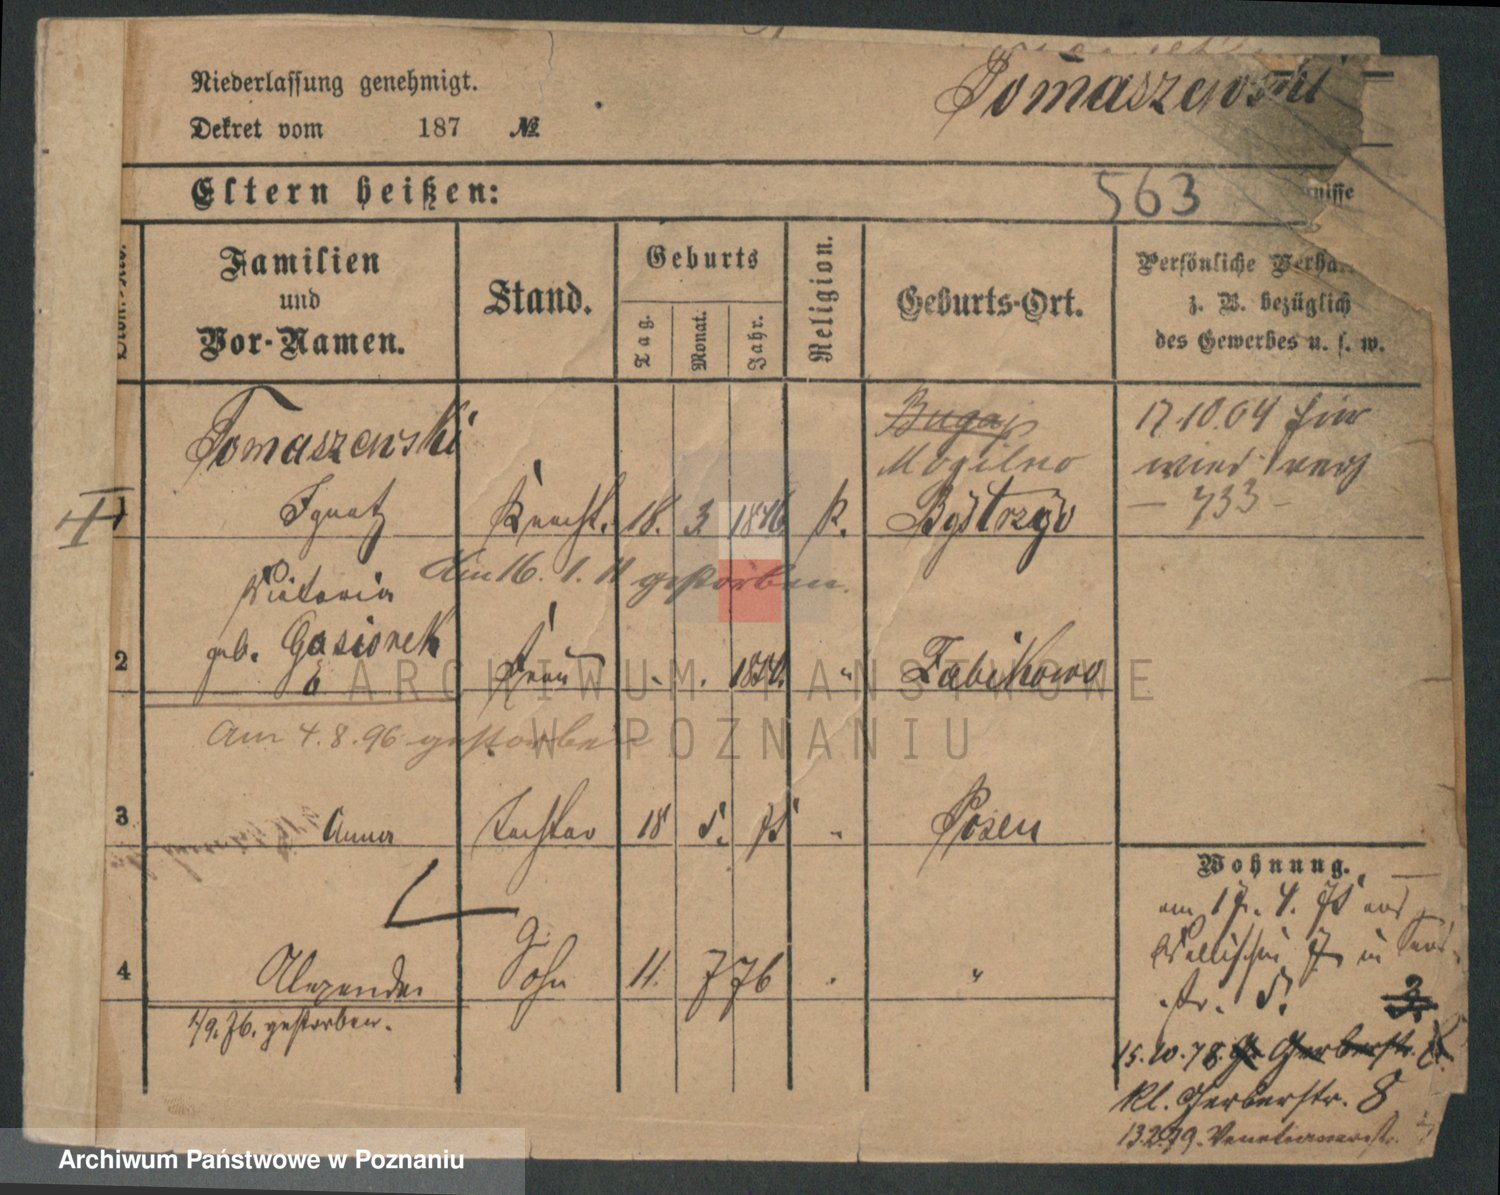 Tomaszewski
Niederlassung genehmigt.
Dekret vom 187 №
Eltern heißen:
563
nisse
Familien
und
Vor-Namen.
Stand.
Geburts
Tag.
Monat.
Jahr.
Religion.
Geburts-Ort.
Persönliche Verhä
z. B. bezüglich
des Gewerbes u. s. w.
Tomaszewski
Bugaj
Mogilno
17.10.04 hier
wied verz
– 733 –
1 Ignatz Knecht. 18. 3. 1846. k. Bystrzyc
Am 16. 1. 11 gestorben.
Victoria
geb. Gąsiorek
2 Frau - . " Żabikowo
Am 4.8.96 gestorben
3 Anna Tochter 18 5. 75 " Posen
Wohnung.
am 17. 4. 75 aus
Wallischei 7 in
str. 5.
4 Alexander Sohn 11. 7 76 . "
1/9.76. gestorben.
15.10.78. Gr Gerberstr.
kl. Gerberstr. 8
13.2.79. Venetianerstr.
ARCHIWUM PAŃSTWOWE
W POZNANIU
Archiwum Państwowe w Poznaniu